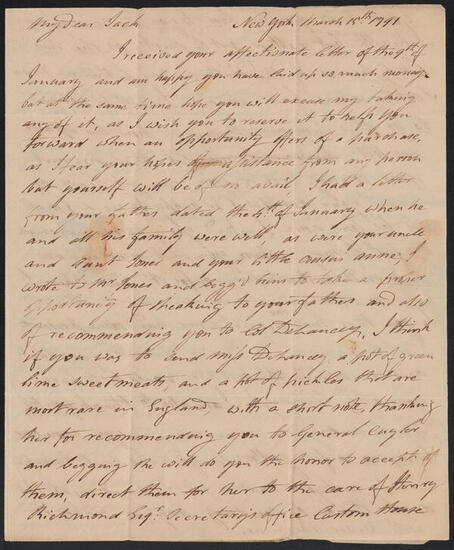 My dear Jack New York March 15th 1791
I received your affectionate letter of the 9th of
January and am happy you have laid up so much money
but at the same time hope you will excuse my taking
any of it, as I wish you to reserve it to help you
forward when an opportunity offers of a purchase,
as I fear your hopes of assistance from any person
but yourself will be of no avail I had a letter
from your father dated the 4th of January when he
and all his family were well, as were your uncle
and aunt Jones and your little cousin anne, I
wrote to Mr Jones and begg'd him to take a proper
opportunity of speaking to your father and also
of recommending you to Col Delancey, I think
if you was to send Miss Delancey a pot of green
lime sweetmeats, and a pot of pickles that are
most rare in England, with a short note, thanking
her for recommending you to General Cuyler
and begging she will do you the honor to accept of
them, direct them for her to the care of Henry
Richmond Esqr. Secretarys office Custom House